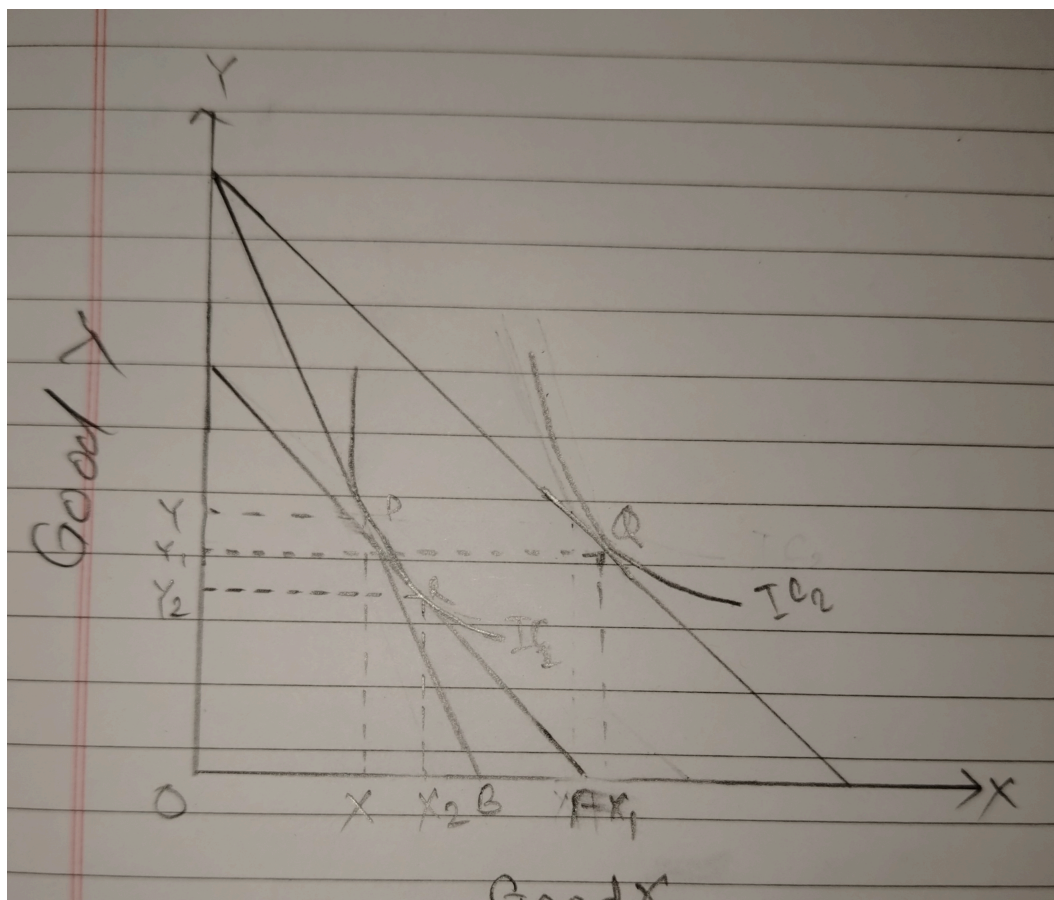 Y
Good Y
Y
P
Q
Y1
Y2
R
IC2
IC1
O
X
X2
B
A
X1
X
Good X